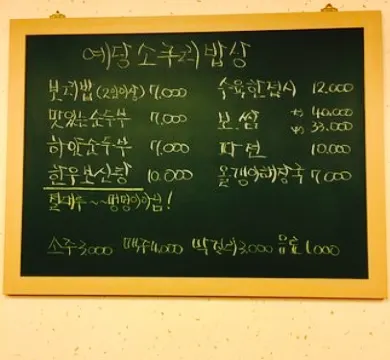 예당소쿠리밥상
보리밥(2인이상) 7,000 수육한접시 12,000
맛있는순두부 7,000 보쌈 大 40,000 中 33,000
하얀순두부 7,000 파전 10,000
한우보신탕 10,000 올갱이해장국 7,000
절대주~~멍멍이아님!
소주3,000 맥주4,000 막걸리3,000 음료1,000